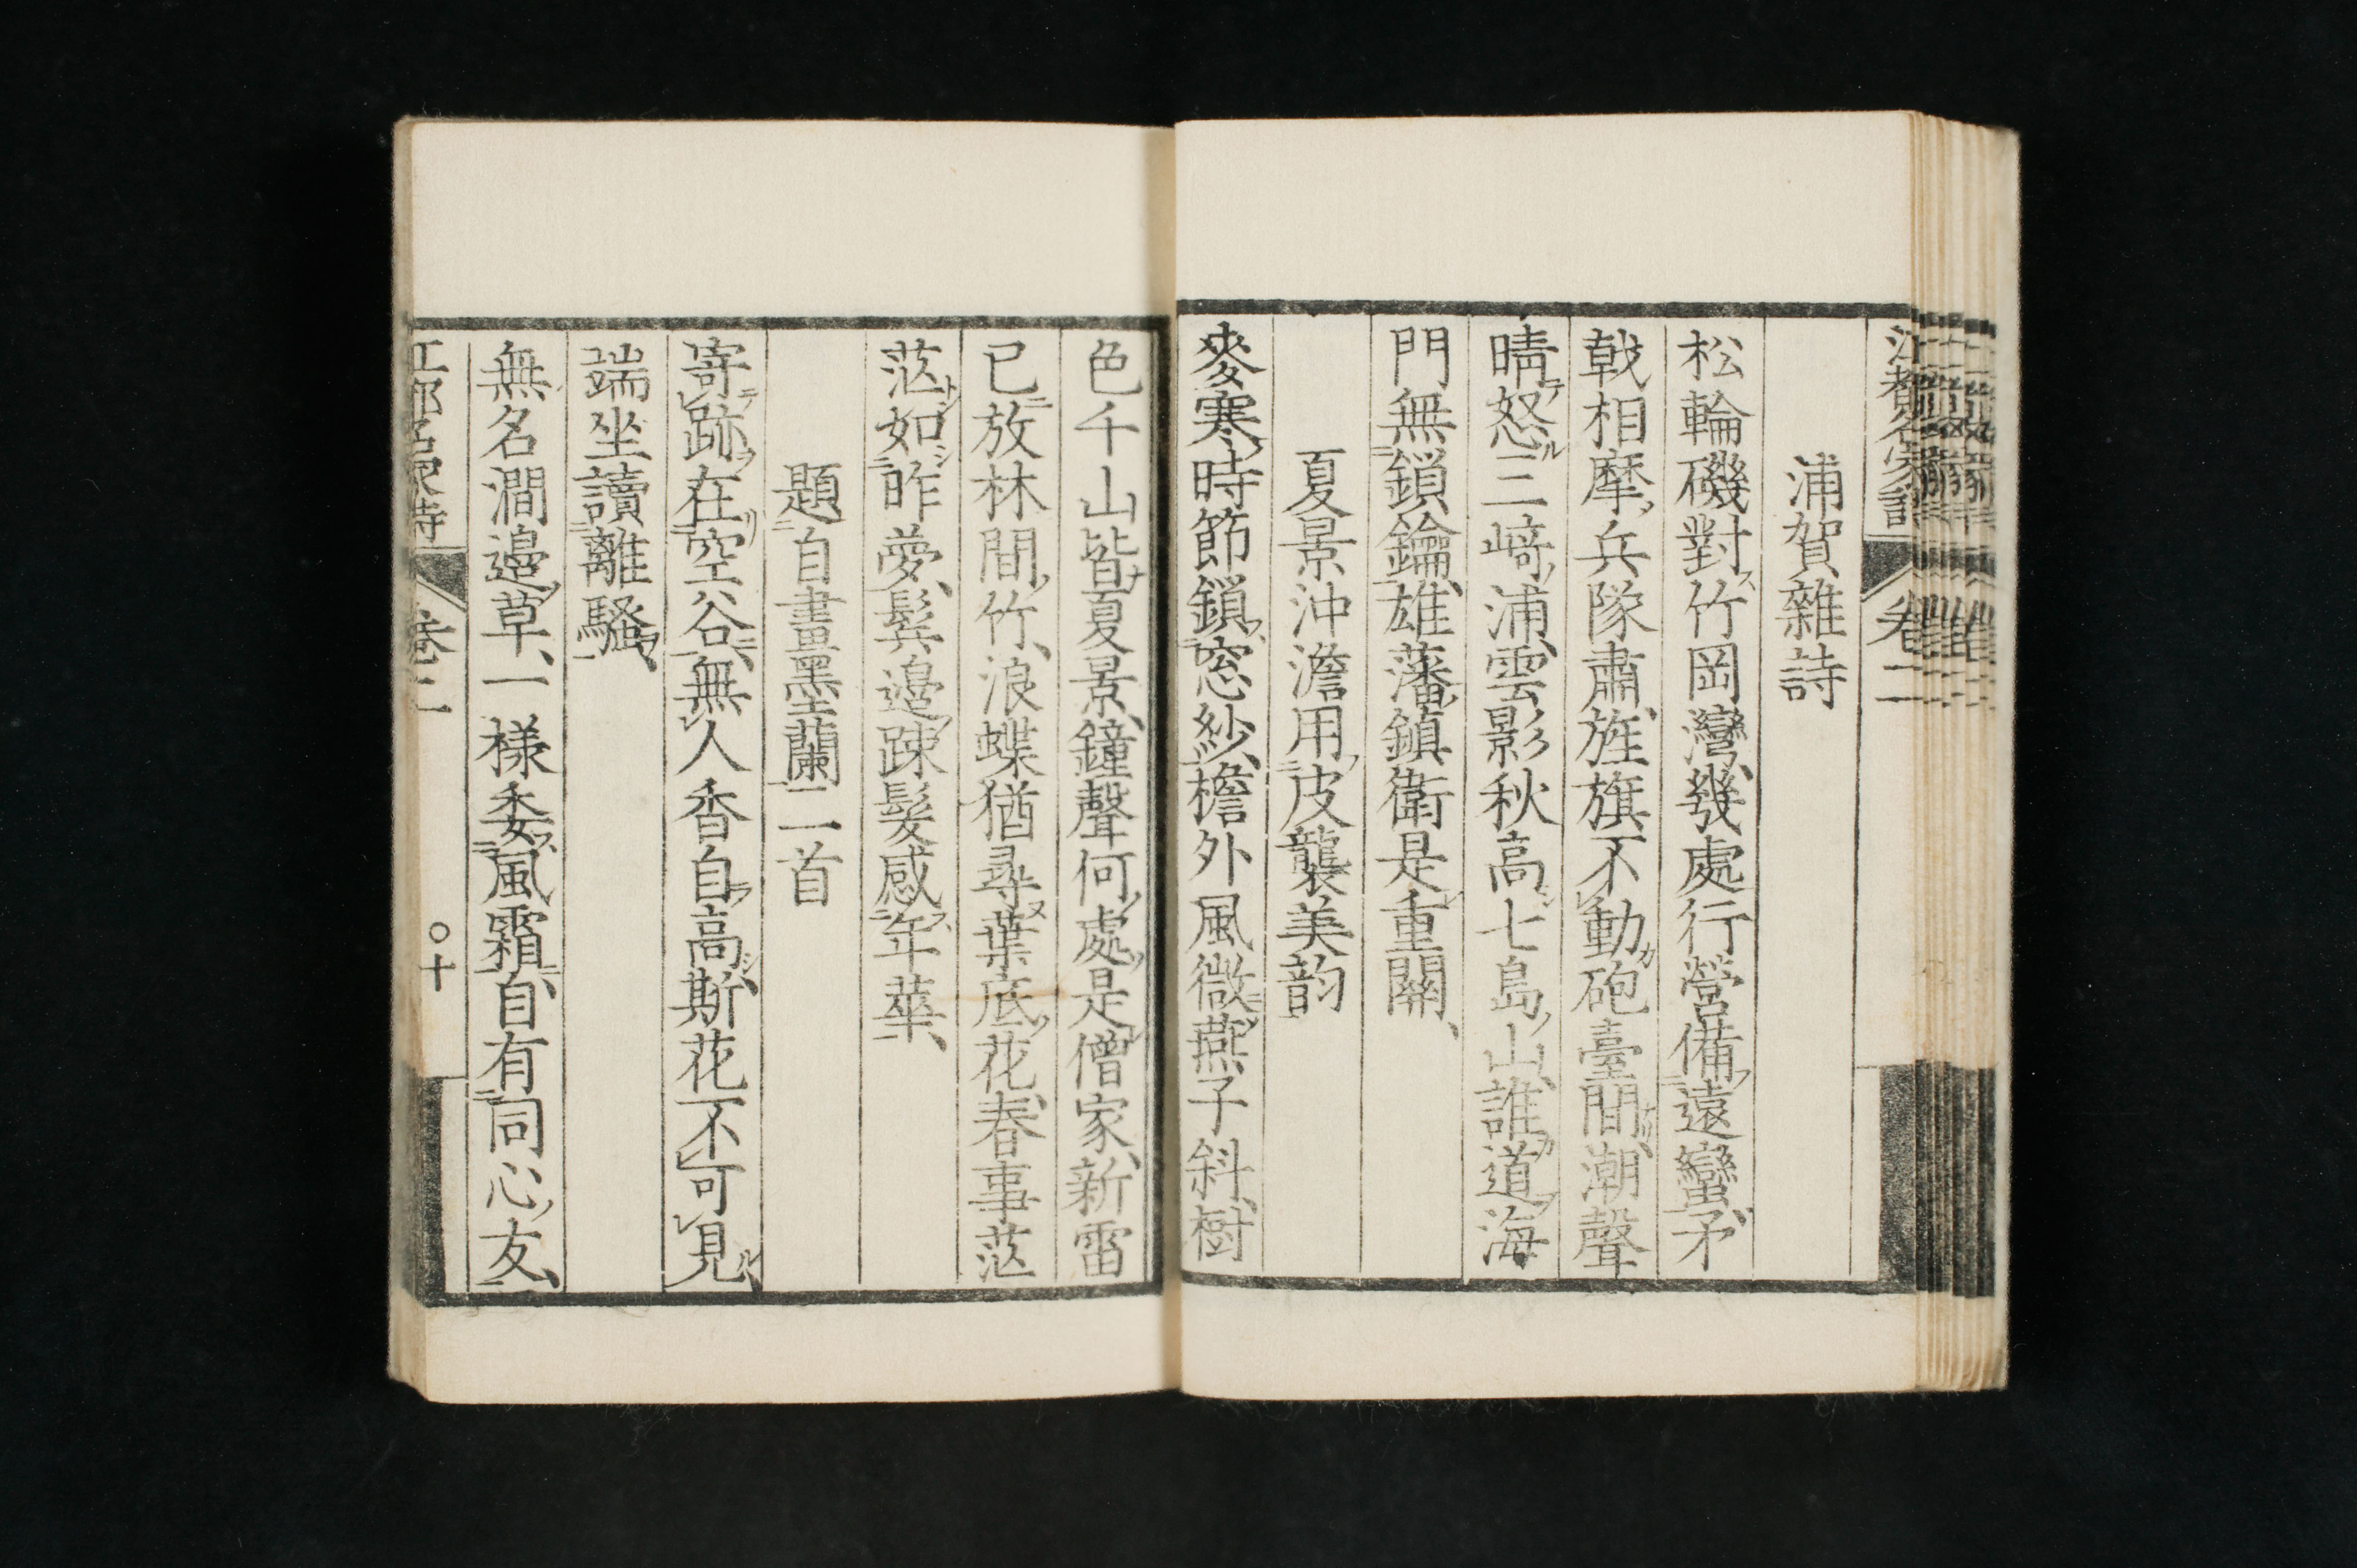 浦賀雜詩
松輪磯對竹岡灣幾處行營備遠蠻矛
戟相摩兵隊肅旌旗不動砲臺間潮聲
晴怒三﨑浦雲影秋高七島山誰道海
門無鎖鑰雄藩鎮衛是重關
夏景沖澹用皮襲美韵
麥寒時節鎖窓紗檐外風微燕子斜樹
色千山皆夏景鐘聲何處是僧家新雷
已放林間竹浪蝶猶尋葉底花春事茫
茫如昨夢鬂邊踈髮感年華
題自畫墨蘭二首
寄跡在空谷無人香自高斯花不可見
端坐讀離騷
無名澗邉草一樣委風霜自有同心友
卷二
〇十
卷二